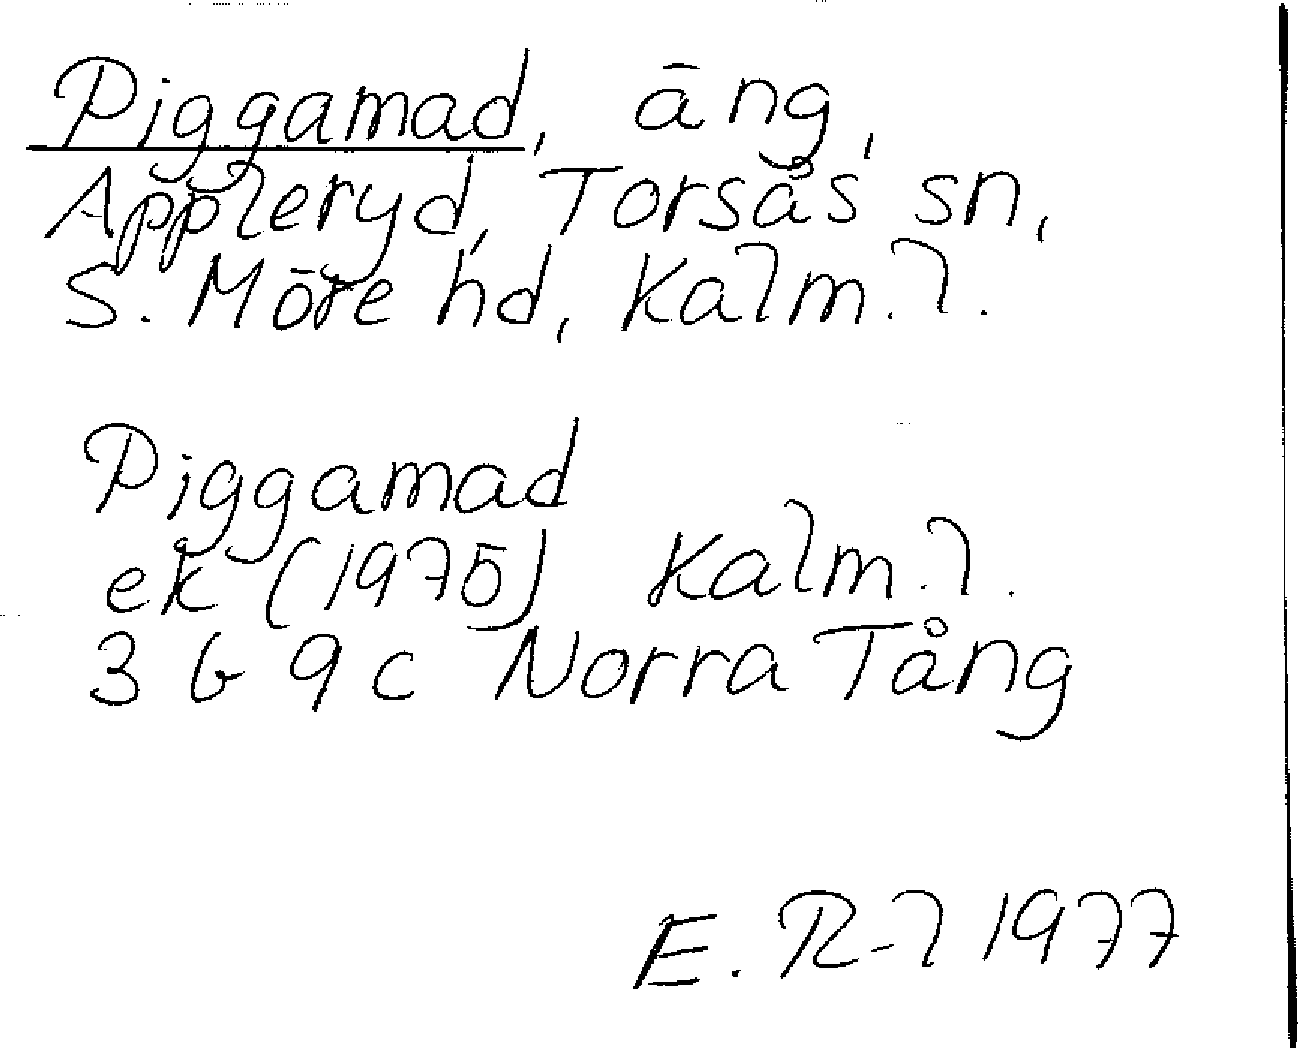 Piggamad, äng,
Appleryd, Torsås sn,
S. Möre hd, Kalm. l.
Piggamad
ek (1975) Kalm. l.
3 G 9 c Norra Tång
E. R-l 1977